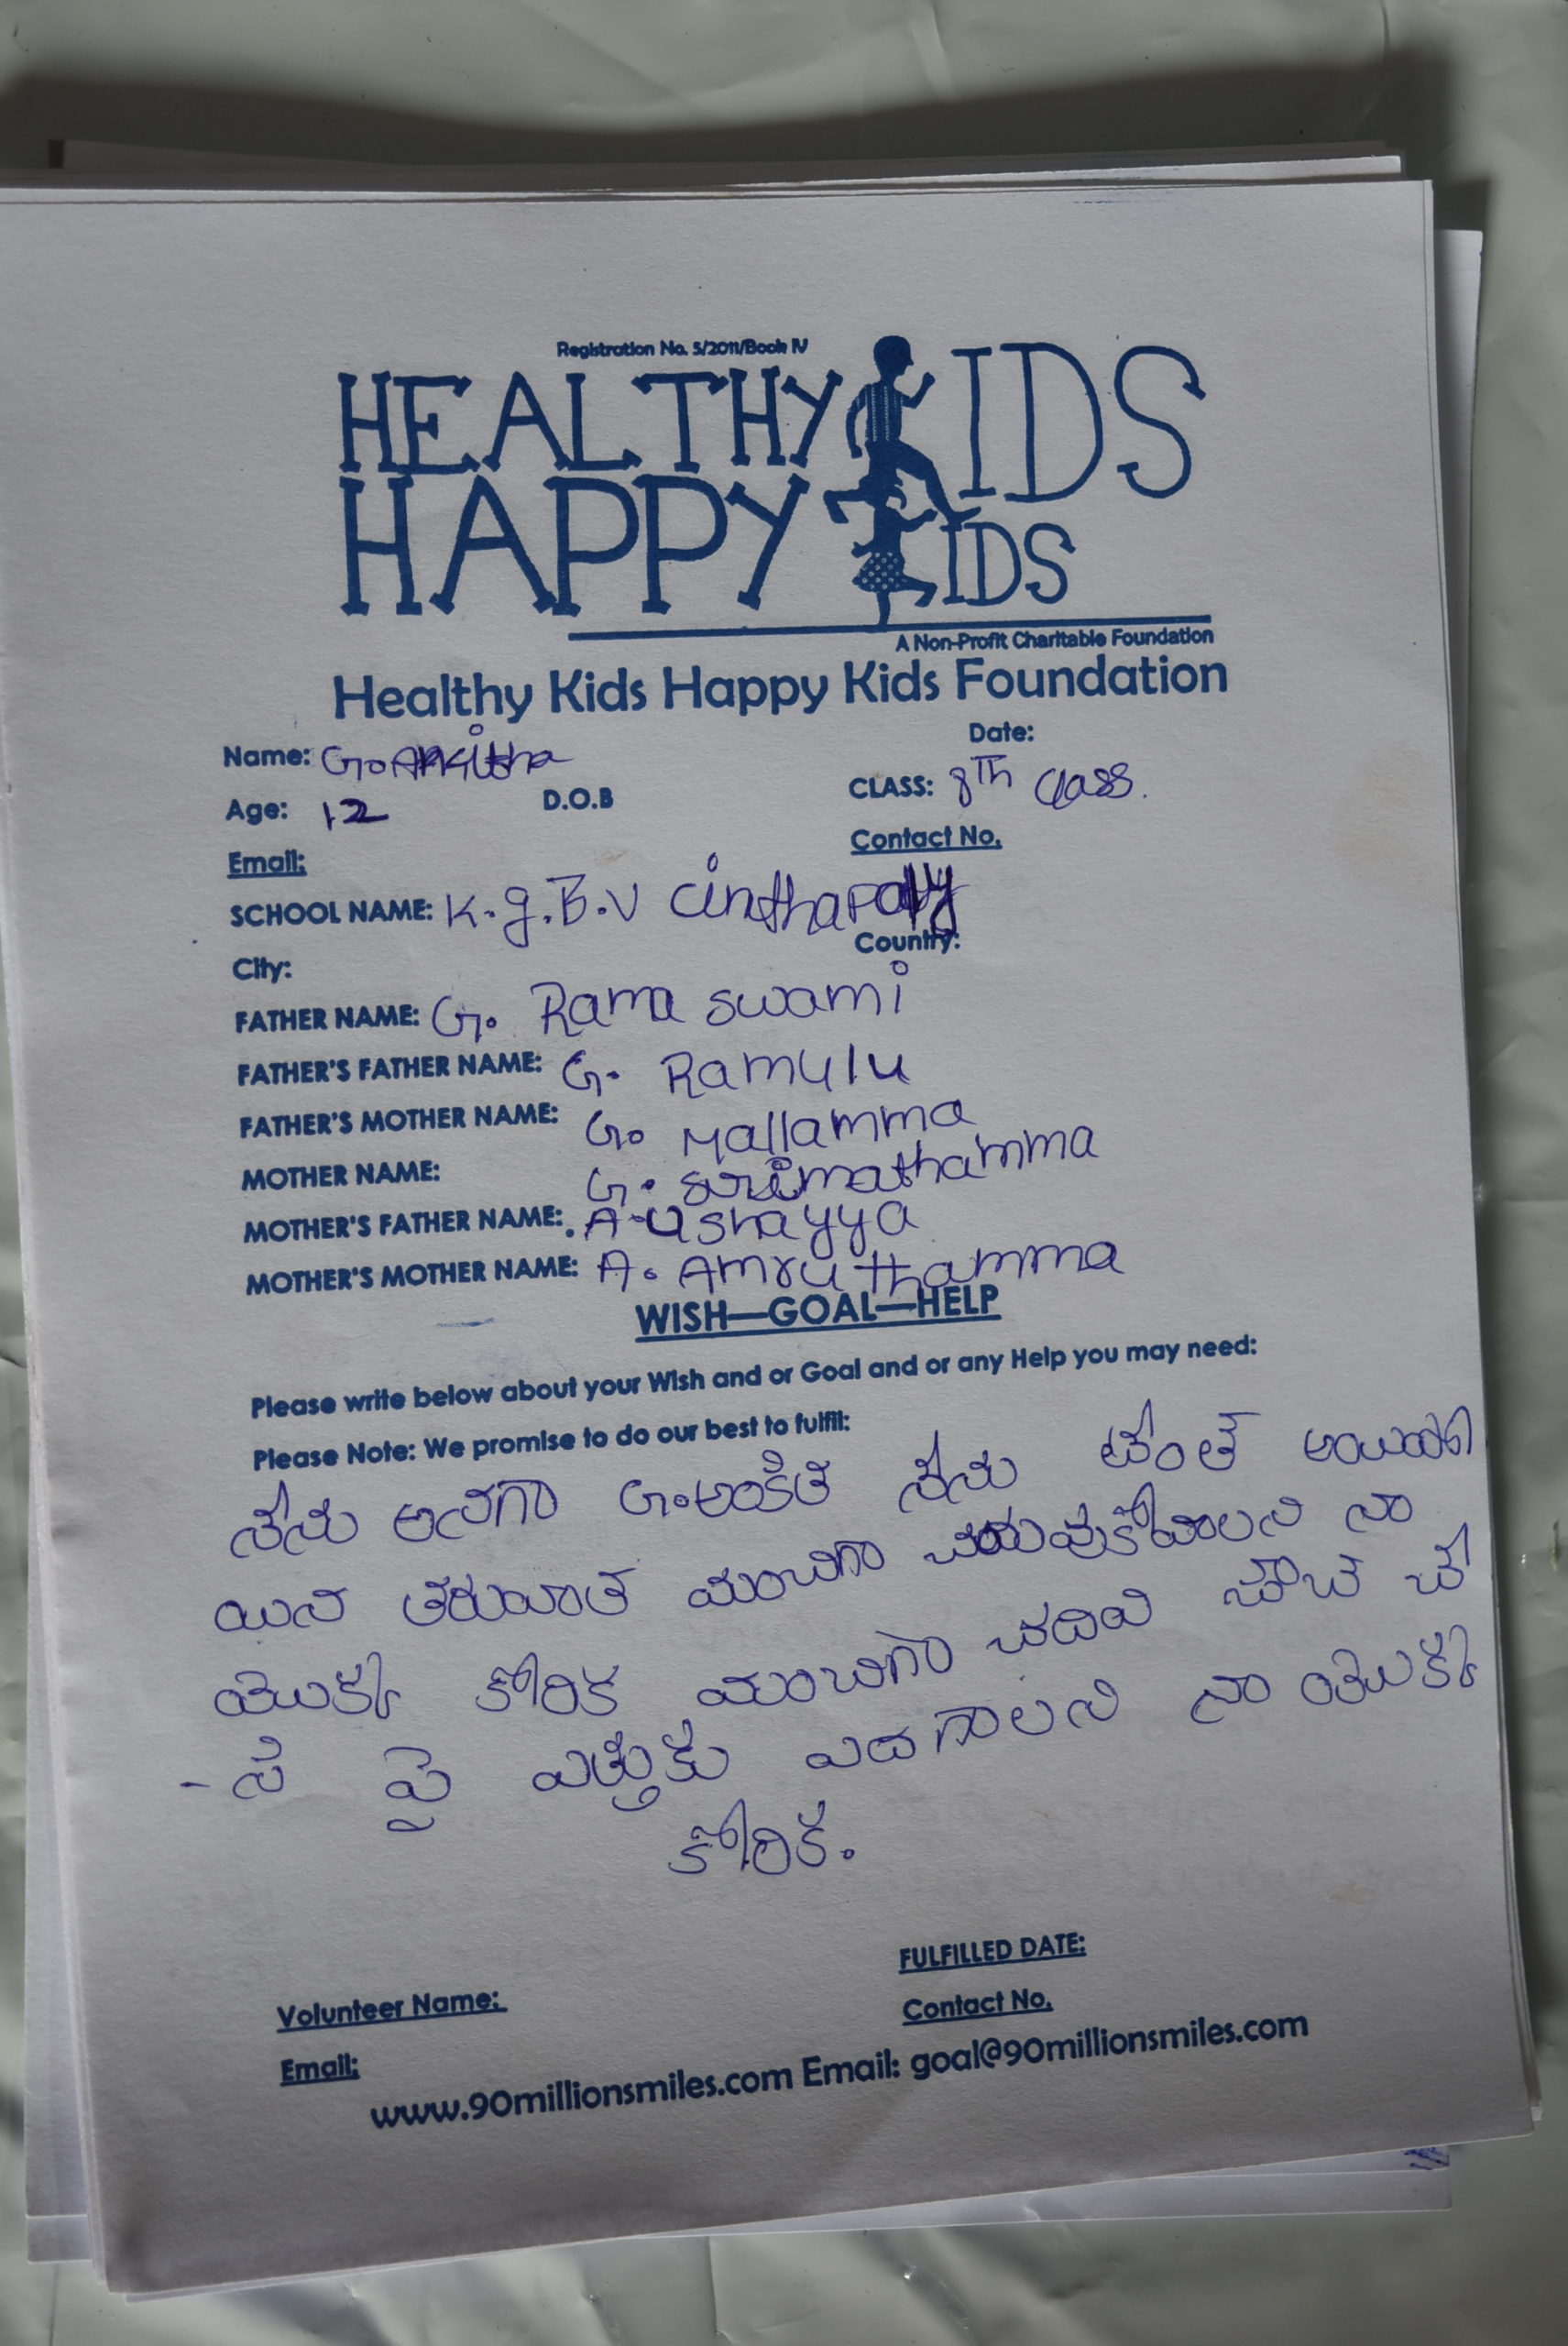 Registration No. 5/2011/Book IV
HEALTHY KIDS
HAPPY KIDS
A Non-Profit Charitable Foundation
Healthy Kids Happy Kids Foundation
Name: G. Ankitha Date:
Age: 12 D.O.B CLASS: 8Th Class.
Email: Contact No.
SCHOOL NAME: K.g.B.V Cinthapally
City: Country:
FATHER NAME: G. Rama swami
FATHER'S FATHER NAME: G. Ramulu
FATHER'S MOTHER NAME: G. Mallamma
MOTHER NAME: G. srimathamma
MOTHER'S FATHER NAME: A. Ushayya
MOTHER'S MOTHER NAME: A. Amruthamma
WISH—GOAL—HELP
Please write below about your Wish and or Goal and or any Help you may need:
Please Note: We promise to do our best to fulfil:
నేను అనగా G. అంకిత నేను టెంత్
యిన తరువాత మంచిగా చదువుకోవాలని నా
యొక్క కోరిక మంచిగా చదివి
పై ఎత్తుకు ఎదగాలని నా యొక్క
కోరిక.
FULFILLED DATE:
Volunteer Name: Contact No.
Email:
www.90millionsmiles.com Email: goal@90millionsmiles.com